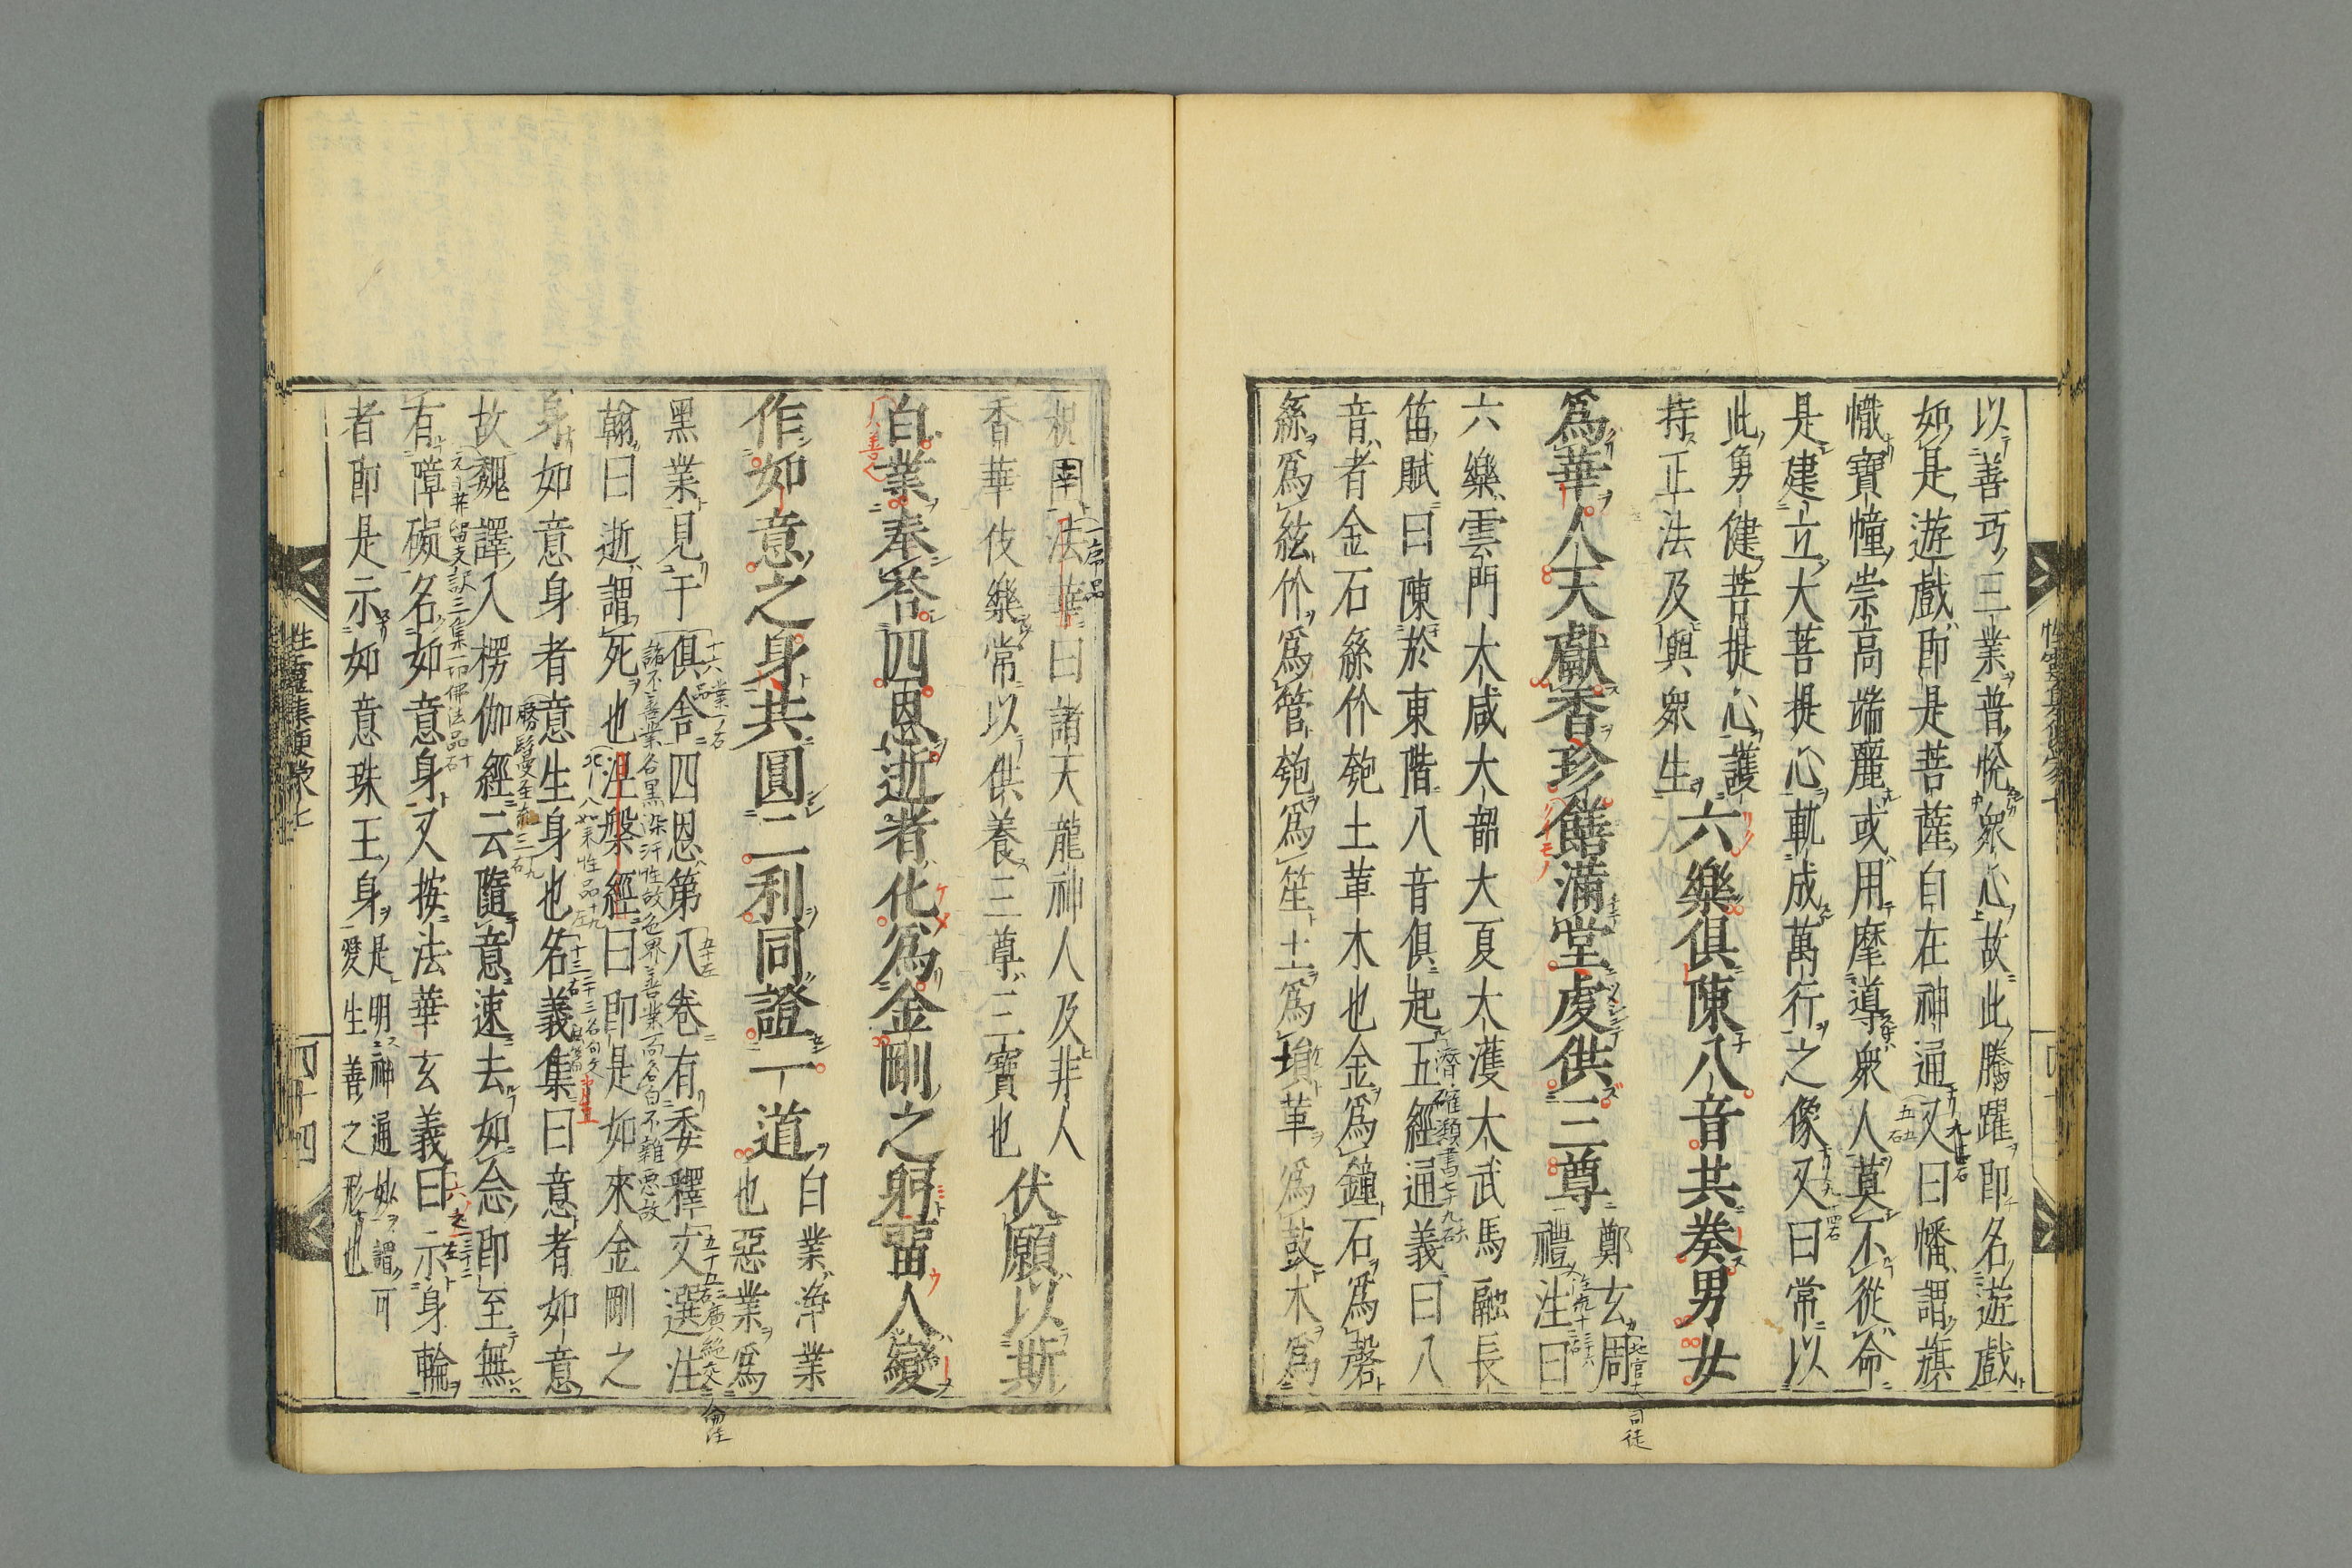 以善巧三業普悅衆心故此騰躍即名遊戲
如是遊戲即是菩薩自在神通又曰幡謂旗
幟寶幢崇高端麗或用摩導衆人莫不從命
是建立大菩提心軌成萬行之像又曰常以
此勇健菩提心護
持正法及與衆生
六樂俱陳八音共奏男女
爲華人天獻香珍饍滿堂虔供三尊
鄭玄周
禮注曰
六樂雲門大咸大韶大夏大濩大武馬融長
笛賦曰陳於東階八音俱起五經通義曰八
音者金石絲竹匏土革木也金爲鐘石爲磬
絲爲絃竹爲管匏爲笙土爲塤革爲鼓木爲
柷圉法華曰諸天龍神人及非人
香華伎樂常以供養三尊三寶也
伏願以斯
白業奉荅四恩逝者化爲金剛之躬留人變
作如意之身共圓二利同證一道
白業淨業
也惡業爲
黑業見于俱舎四恩第八卷有委釋文選注
翰曰逝謂死也涅槃經曰即是如來金剛之
身如意身者意生身也名義集曰意者如意
故魏譯入楞伽經云隨意速去如念即至無
有障礙名如意身又按法華玄義曰示身輪
者即是示如意珠王身是明神通妙謂可
愛生善之形也
性靈集便蒙七
四十四